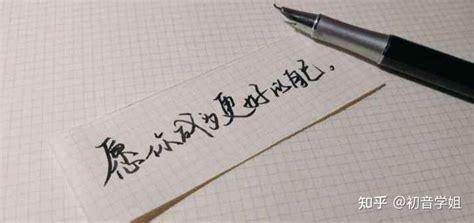 愿你成为更好的自己。
知乎 @初音学姐